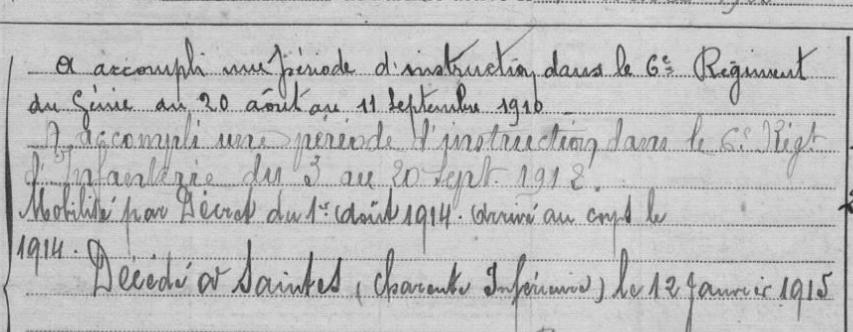 A accompli une période d'instruction dans le 6e Régiment
du Génie au 20 août au 11 Septembre 1910
A accompli une période d'instruction dans le 6e Régt
d'Infanterie du 3 au 20 Sept. 1912.
Mobilisé par Décret du 1er Août 1914. Arrivé au corps le
1914.
Décédé à Saintes, (Charente Inférieure) le 12 Janvier 1915